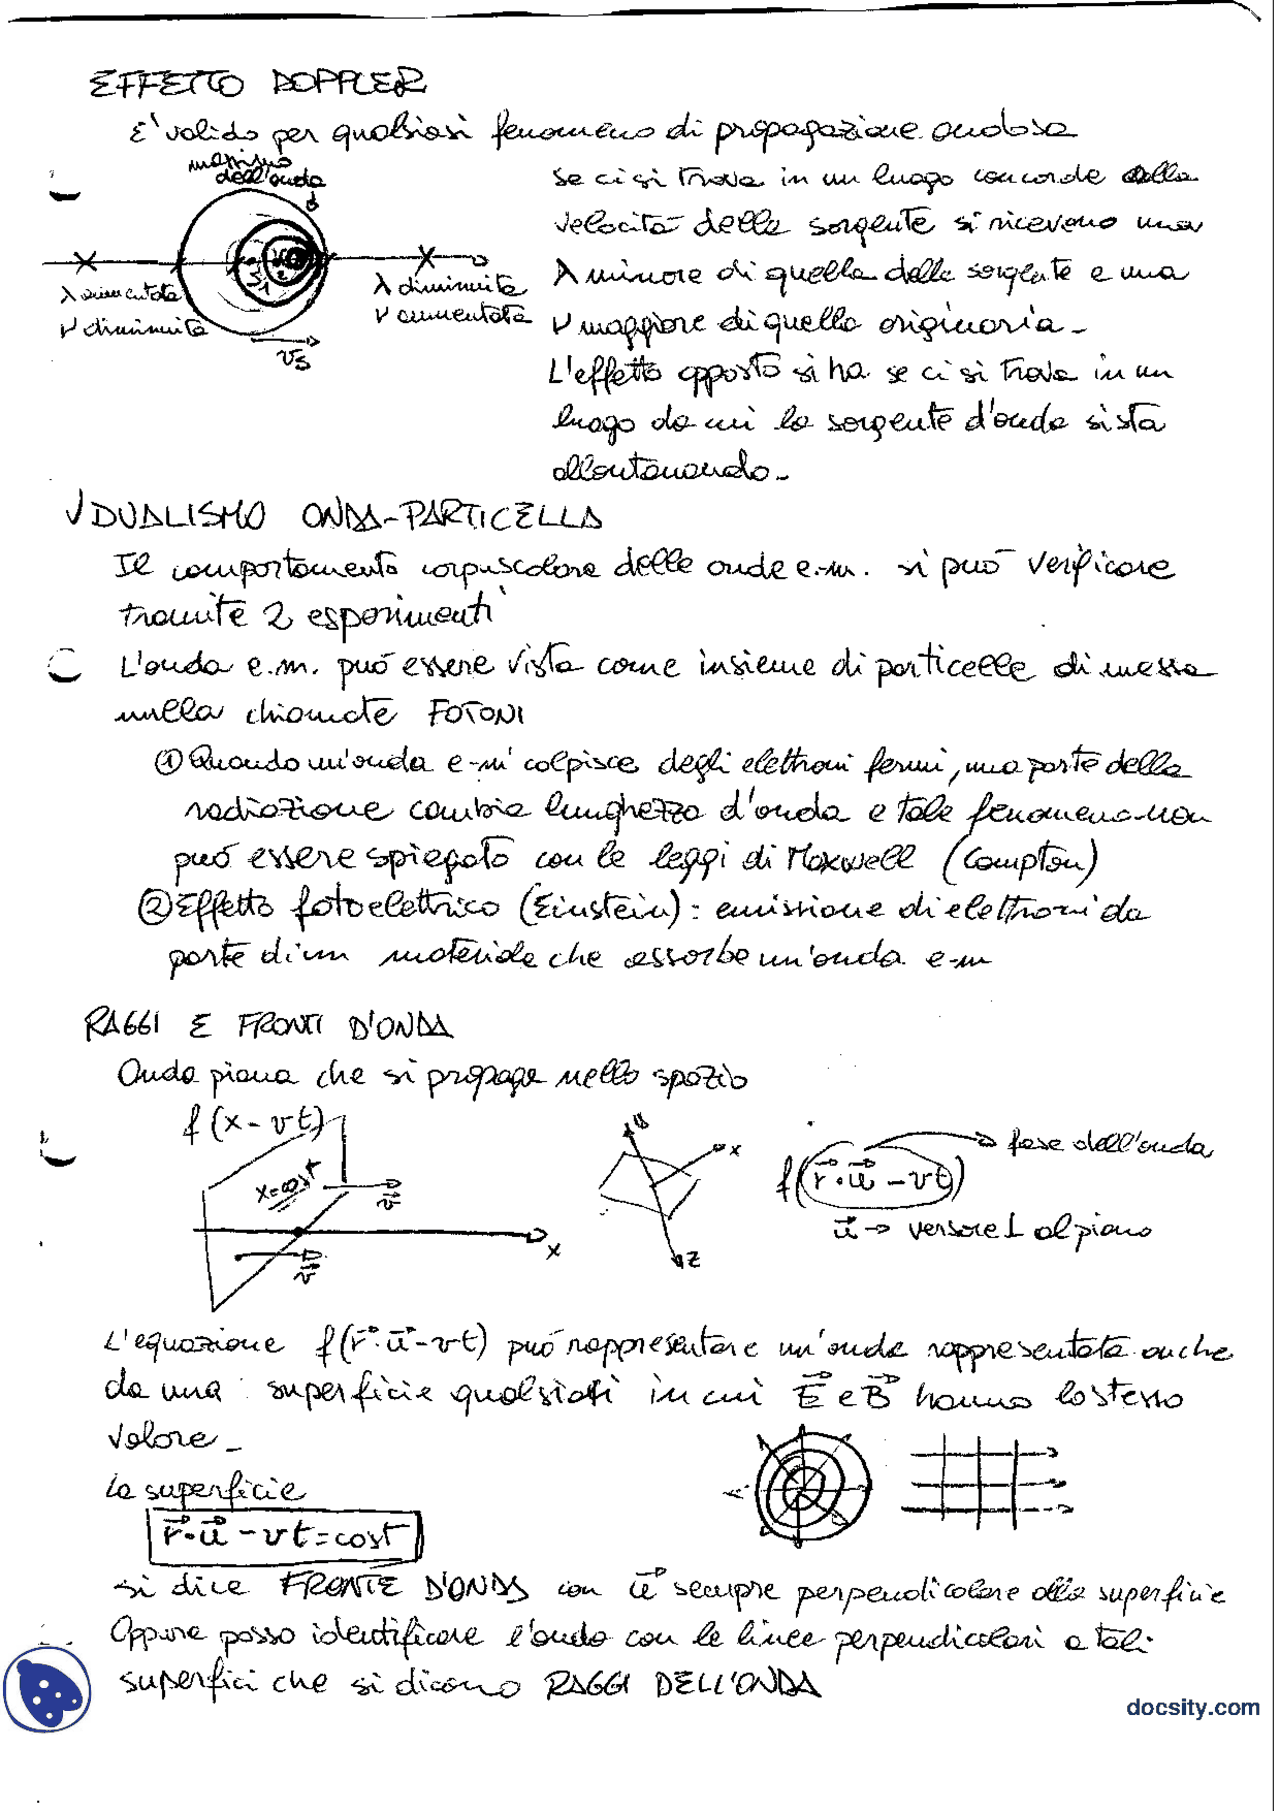 EFFETTO DOPPLER
E' valido per qualsiasi fenomeno di propagazione ondosa
massimo
dell'onda
λ aumentata
ν diminuita
v_s
λ diminuita
ν aumentata
Se ci si trova in un luogo concorde alla
velocità della sorgente si ricevono una
λ minore di quella della sorgente e una
ν maggiore di quella originaria-
L'effetto opposto si ha se ci si trova in un
luogo da cui la sorgente d'onda si sta
allontanando-
√ DUALISMO ONDA-PARTICELLA
Il comportamento corpuscolare delle onde e.m. si può verificare
tramite 2 esperimenti
L'onda e.m. può essere vista come insieme di particelle di massa
nulla chiamate FOTONI
① Quando un'onda e-m colpisce degli elettroni fermi, una parte della
radiazione cambia lunghezza d'onda e tale fenomeno non
può essere spiegato con le leggi di Maxwell (Compton)
② Effetto fotoelettrico (Einstein): emissione di elettroni da
parte di un materiale che assorbe un'onda e-m
RAGGI E FRONTI D'ONDA
Onda piana che si propaga nello spazio
f(x-vt)
x=cost
v⃗
x
v⃗
y
x
z
f(r⃗·u⃗-vt)
fase dell'onda
u⃗ → versore ⊥ al piano
L'equazione f(r⃗·u⃗-vt) può rappresentare un'onda rappresentata anche
da una superficie qualsiasi in cui E⃗ e B⃗ hanno lo stesso
valore-
La superficie
r⃗·u⃗-vt=cost
si dice FRONTE D'ONDA con u⃗ sempre perpendicolare alla superficie
Oppure posso identificare l'onda con le linee perpendicolari a tali
superfici che si dicono RAGGI DELL'ONDA
docsity.com